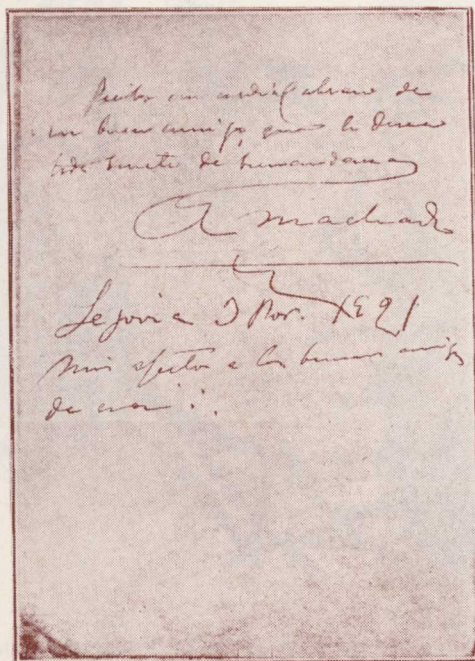 Reciba un cordial abrazo de
un buen amigo que le desea
toda suerte de
A Machado
Segovia 3 Nov. 1921
Mis afectos a los buenos amigos
de